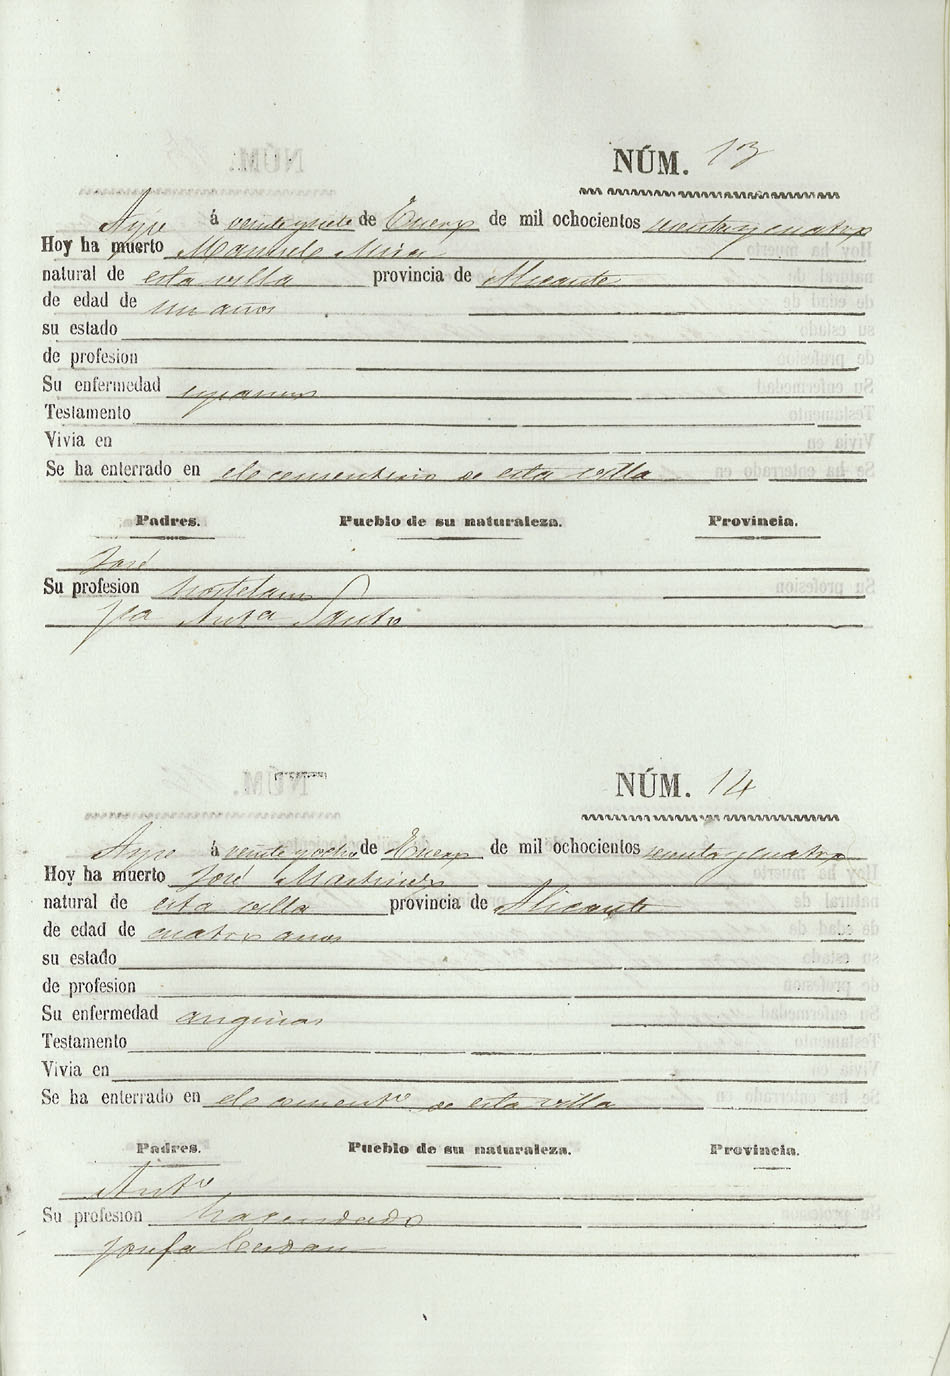 NÚM. 13
Aspe á veinte y siete de Enero de mil ochocientos sesenta y cuatro
Hoy ha muerto Manuele Mira
natural de esta villa provincia de Alicante
de edad de un años
su estado
de profesion
Su enfermedad espasmos
Testamento
Vivia en
Se ha enterrado en el cementerio de esta villa
Padres. Pueblo de su naturaleza. Provincia.
José
Su profesion hortelano
Anta
NÚM. 14
Aspe á veinte y ocho de Enero de mil ochocientos sesenta y cuatro
Hoy ha muerto José Martinez
natural de esta villa provincia de Alicante
de edad de cuatro años
su estado
de profesion
Su enfermedad anginas
Testamento
Vivia en
Se ha enterrado en el cementº de esta villa
Padres. Pueblo de su naturaleza. Provincia.
Antº
Su profesion hacendado
Josefa Cerdan